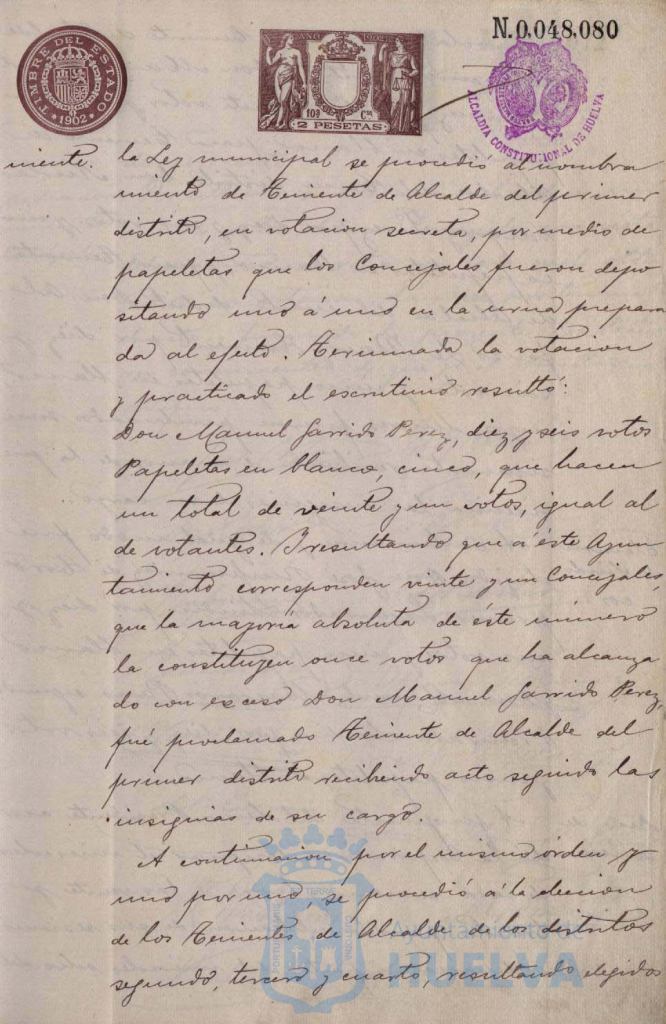 N.0,048,080
TIMBRE DEL ESTADO
* 1902 *
AÑO 1902
10ª Cse
2 PESETAS
ALCALDIA CONSTITUCIONAL DE HUELVA
miento.
la Ley municipal se procedió al nombra
miento de Teniente de Alcalde del primer
distrito, en votacion secreta, por medio de
papeletas que los Concejales fueron depo
sitando uno á uno en la urna prepara
da al efecto. Terminada la votacion
y practicado el escrutinio resultó:
Don Manuel Garrido Perez, diez y seis votos
Papeletas en blanco, cinco, que hacen
un total de veinte y un votos, igual al
de votantes. Y resultando que á éste Ayun
tamiento corresponden veinte y un Concejales,
que la mayoria absoluta de éste número
la constituyen once votos que ha alcanza
do con exceso Don Manuel Garrido Perez,
fué proclamado Teniente de Alcalde del
primer distrito recibiendo acto seguido las
insignias de su cargo.
A continuacion por el mismo órden y
uno por uno, se procedió á la eleccion
de los Tenientes de Alcalde de los distritos
segundo, tercero y cuarto, resultando elegidos
Ayuntamiento de
HUELVA